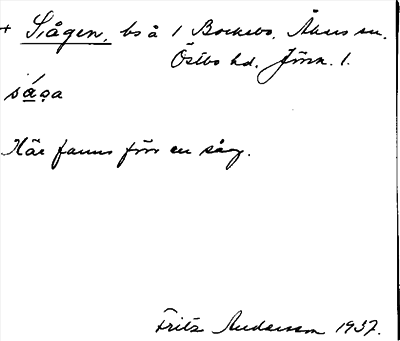 + Sågen, bs å 1 Bockebo, Åkers sn.
Östbo hd. Jönk. l.
sága
Här fanns förr en såg.
Fritz Andersson 1937.